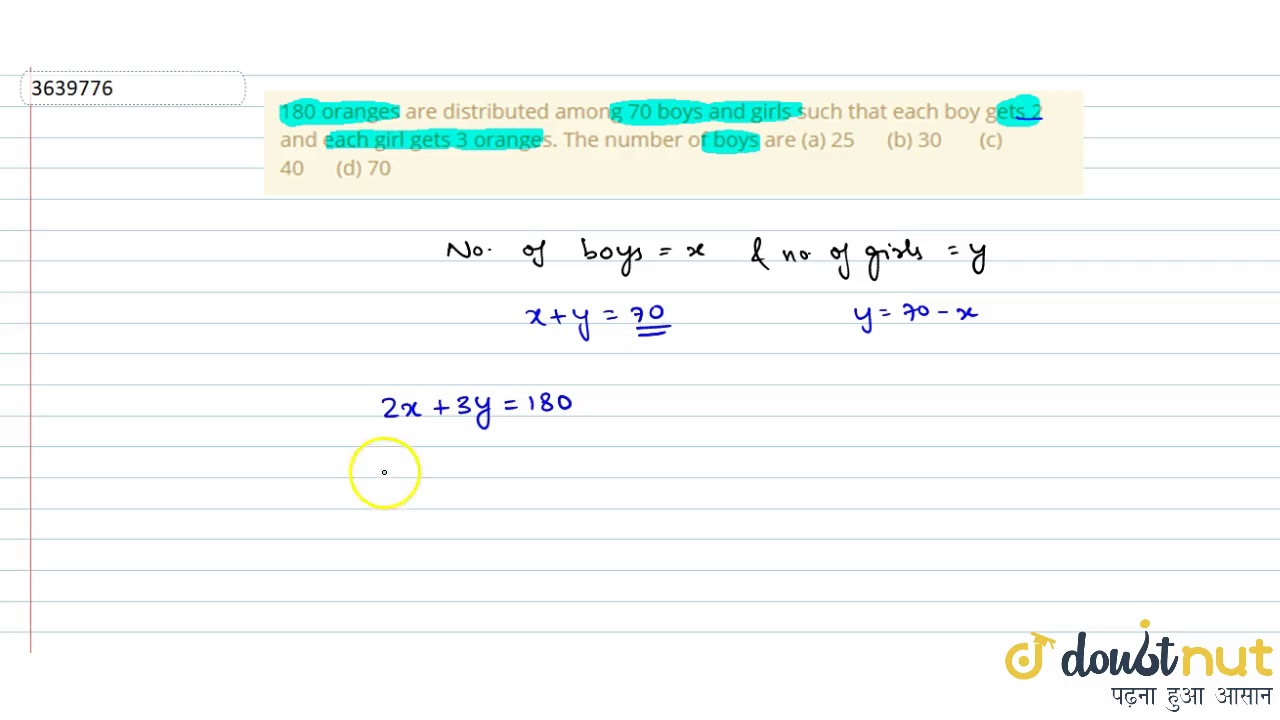 3639776
180 oranges are distributed among 70 boys and girls such that each boy gets 2
and each girl gets 3 oranges. The number of boys are (a) 25 (b) 30 (c)
40 (d) 70
No. of boys = x & no. of girls = y
x + y = 70 y = 70 - x
2x + 3y = 180
doubtnut
पढ़ना हुआ आसान